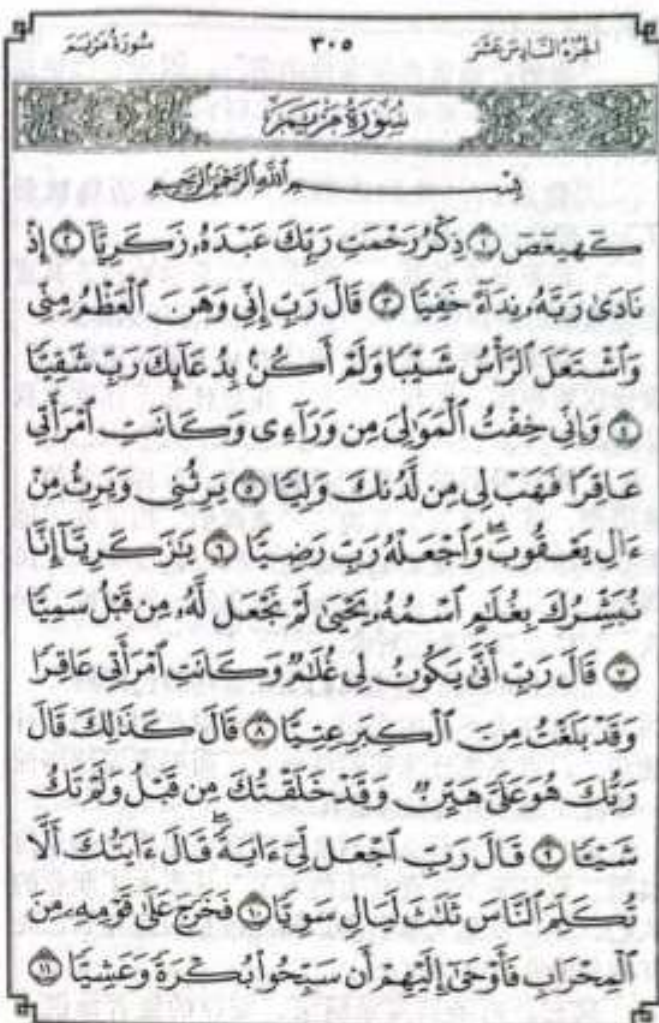 الجزء السادس عشر ٣٠٥ سورة مريم
سُورَةُ مَرْيَمَ
بِسْمِ ٱللَّهِ ٱلرَّحْمَٰنِ ٱلرَّحِيمِ
كٓهيعٓصٓ ١ ذِكْرُ رَحْمَتِ رَبِّكَ عَبْدَهُۥ زَكَرِيَّآ ٢ إِذْ
نَادَىٰ رَبَّهُۥ نِدَآءً خَفِيًّا ٣ قَالَ رَبِّ إِنِّى وَهَنَ ٱلْعَظْمُ مِنِّى
وَٱشْتَعَلَ ٱلرَّأْسُ شَيْبًا وَلَمْ أَكُنۢ بِدُعَآئِكَ رَبِّ شَقِيًّا
٤ وَإِنِّى خِفْتُ ٱلْمَوَٰلِىَ مِن وَرَآءِى وَكَانَتِ ٱمْرَأَتِى
عَاقِرًا فَهَبْ لِى مِن لَّدُنكَ وَلِيًّا ٥ يَرِثُنِى وَيَرِثُ مِنْ
ءَالِ يَعْقُوبَ ۖ وَٱجْعَلْهُ رَبِّ رَضِيًّا ٦ يَٰزَكَرِيَّآ إِنَّا
نُبَشِّرُكَ بِغُلَٰمٍ ٱسْمُهُۥ يَحْيَىٰ لَمْ نَجْعَل لَّهُۥ مِن قَبْلُ سَمِيًّا
٧ قَالَ رَبِّ أَنَّىٰ يَكُونُ لِى غُلَٰمٌ وَكَانَتِ ٱمْرَأَتِى عَاقِرًا
وَقَدْ بَلَغْتُ مِنَ ٱلْكِبَرِ عِتِيًّا ٨ قَالَ كَذَٰلِكَ قَالَ
رَبُّكَ هُوَ عَلَىَّ هَيِّنٌ وَقَدْ خَلَقْتُكَ مِن قَبْلُ وَلَمْ تَكُ
شَيْـًٔا ٩ قَالَ رَبِّ ٱجْعَل لِّىٓ ءَايَةً ۚ قَالَ ءَايَتُكَ أَلَّا
تُكَلِّمَ ٱلنَّاسَ ثَلَٰثَ لَيَالٍ سَوِيًّا ١٠ فَخَرَجَ عَلَىٰ قَوْمِهِۦ مِنَ
ٱلْمِحْرَابِ فَأَوْحَىٰٓ إِلَيْهِمْ أَن سَبِّحُوا۟ بُكْرَةً وَعَشِيًّا ١١